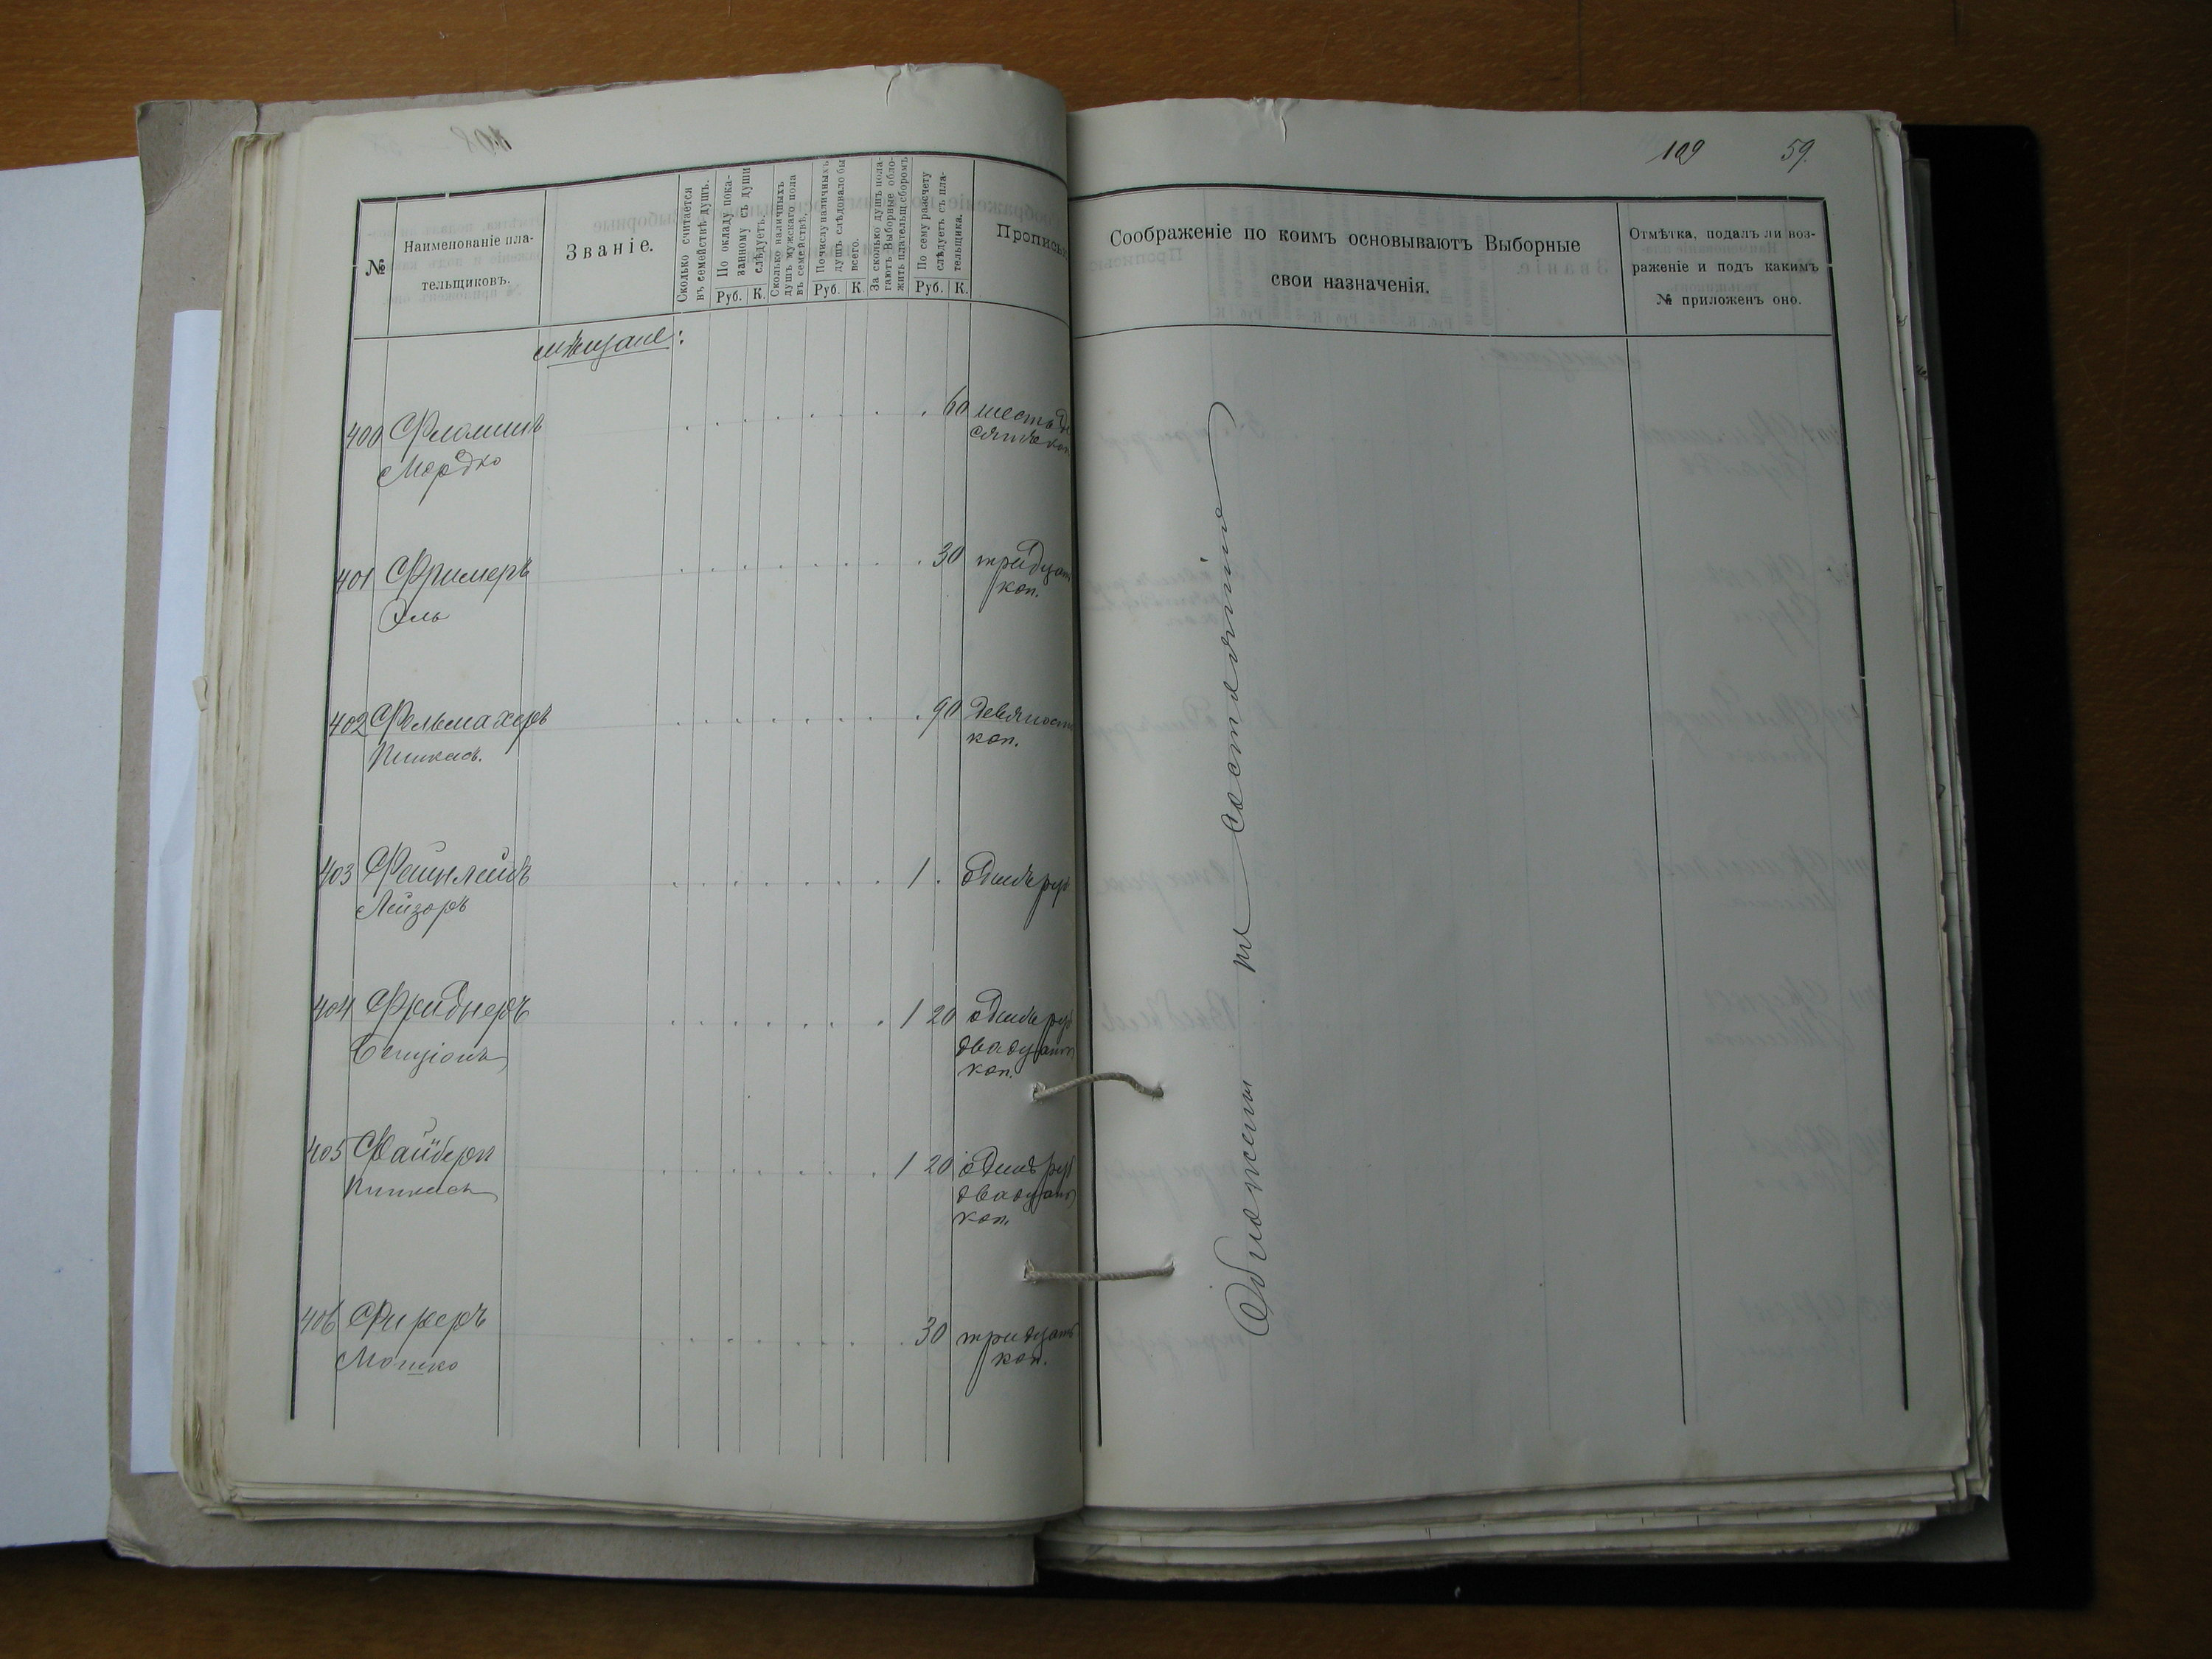 109 59.
№
Наименованіе пла-
тельщиковъ.
Званіе.
Сколько считается
въ семействѣ душъ.
По окладу пока-
занному съ души
слѣдуетъ.
Руб. К.
Сколько наличныхъ
душъ мужскаго пола
въ семействѣ.
По числу наличныхъ
душъ слѣдовало бы
всего.
Руб. К.
За сколько душъ пола-
гаютъ Выборные обло-
жить плательщ. сборомъ
По сему разсчету
слѣдуетъ съ пла-
тельщика.
Руб. К.
Прописью
Соображеніе по коимъ основываютъ Выборные
свои назначенія.
Отмѣтка, подалъ ли воз-
раженіе и подъ какимъ
№ приложенъ оно.
мѣщане:
400 Фломинъ 60 шестьде
Мордко сятъ коп
401 Фримеръ 30 тридцать
Эль коп.
402 Фельмахеръ 90 девяносто
Пинкасъ. коп.
403 Фейнлейбъ 1 . одинъ руб
Лейзоръ
404 Фриднеръ 1 20 одинъ руб
Бенціонъ двадцать
коп.
405 Файберг 1 20 одинъ руб
Пинкасъ двадцать
коп.
406 Фикеръ 30 тридцать
Мошко коп.
Обложены по состоянію